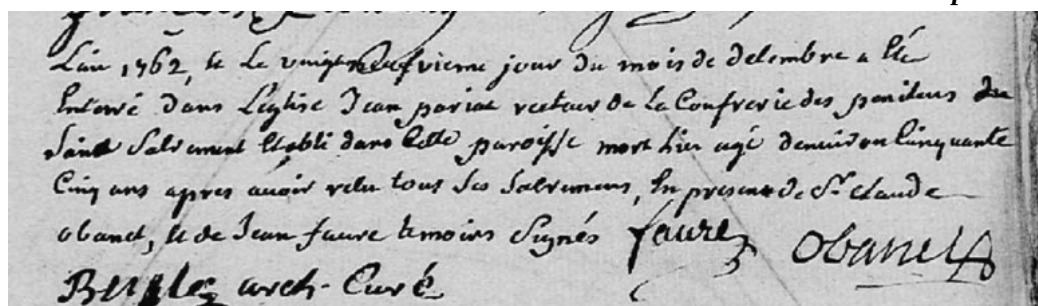 L'an 1762, & le vingt neufvieme jour du mois de decembre a été
enterré dans l'eglise Jean pariat recteur de la Confrerie des penitens du
saint sacrement etabli dans cette paroisse mort hier agé denviron cinquante
cinq ans apres avoir recu tous ses sacremens, en presence de Sr. claude
obanel, & de Jean faure temoins signés faure Obanel
arch. Curé